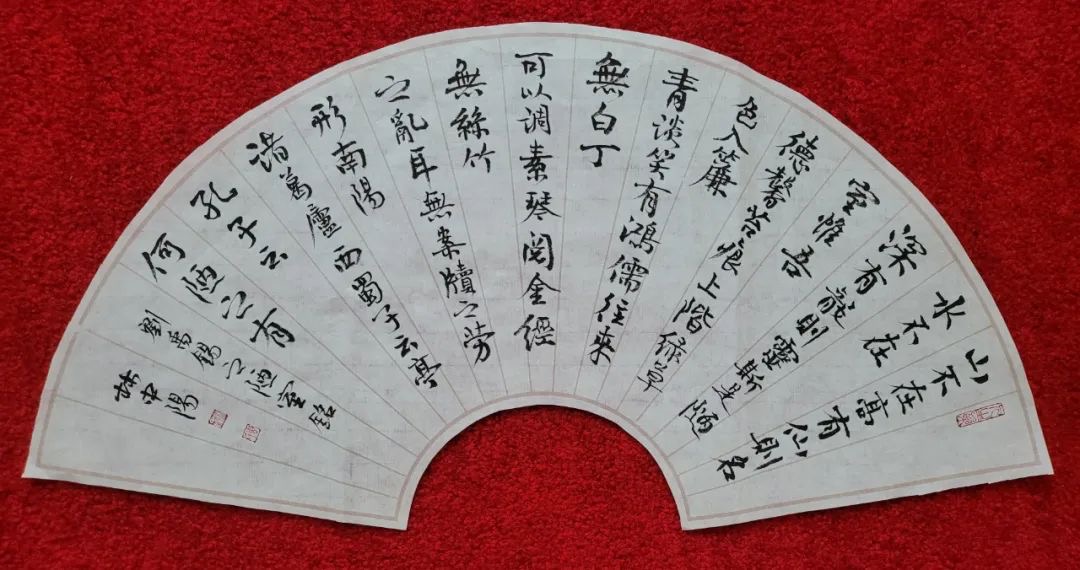 山不在高有仙則名
水不在
深有龍則靈斯是陋
室惟吾
德馨苔痕上階綠草
色入簾
青談笑有鴻儒往来
無白丁
可以调素琴阅金經
無絲竹
之亂耳無案牘之劳
形南陽
渚葛廬西蜀子云亭
孔子云
何陋之有
劉禹锡之陋室铭